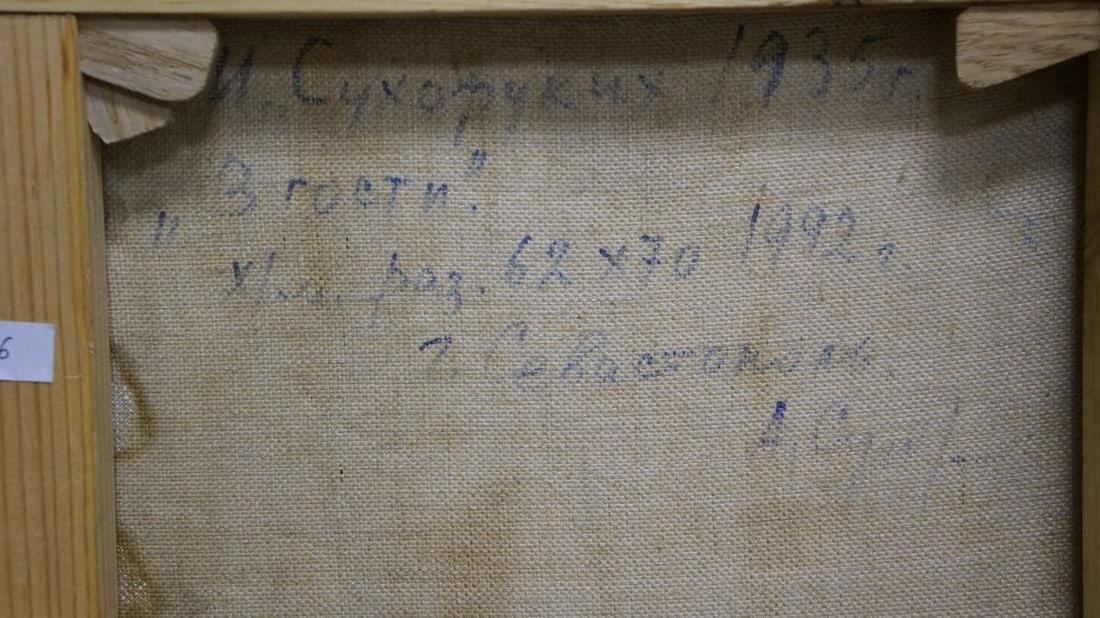 И. Сухоруких 1935 г.
„3 гости."
х/м. раз. 62 х 70 1992 г.
г. Севастополь.
6